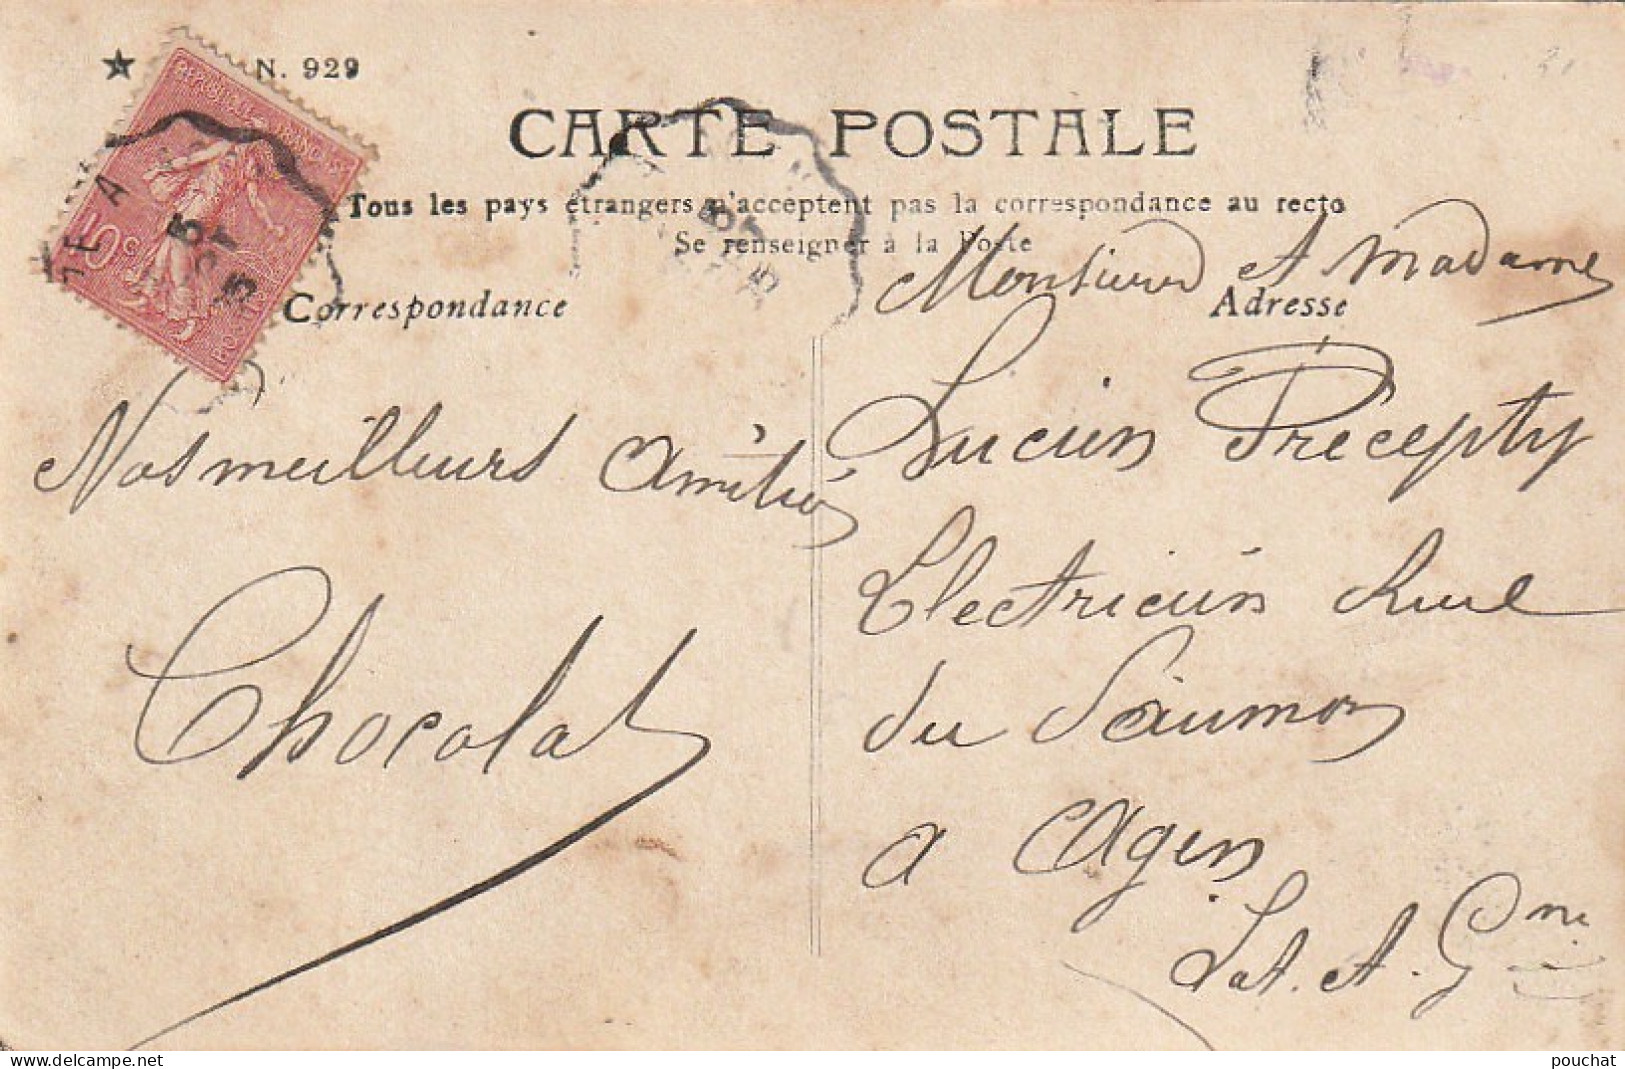 N. 929
CARTE POSTALE
Tous les pays étrangers n'acceptent pas la correspondance au recto
Se renseigner à la Poste
Correspondance
Adresse
REPUBLIQUE FRANÇAISE
10c
POSTES
Nos meilleurs amitiés
Chocolat
Monsieur et Madame
Lucien Précepty
Electricien Rue
du Saumon
a Agen
Lot. et. Gne
pouchat